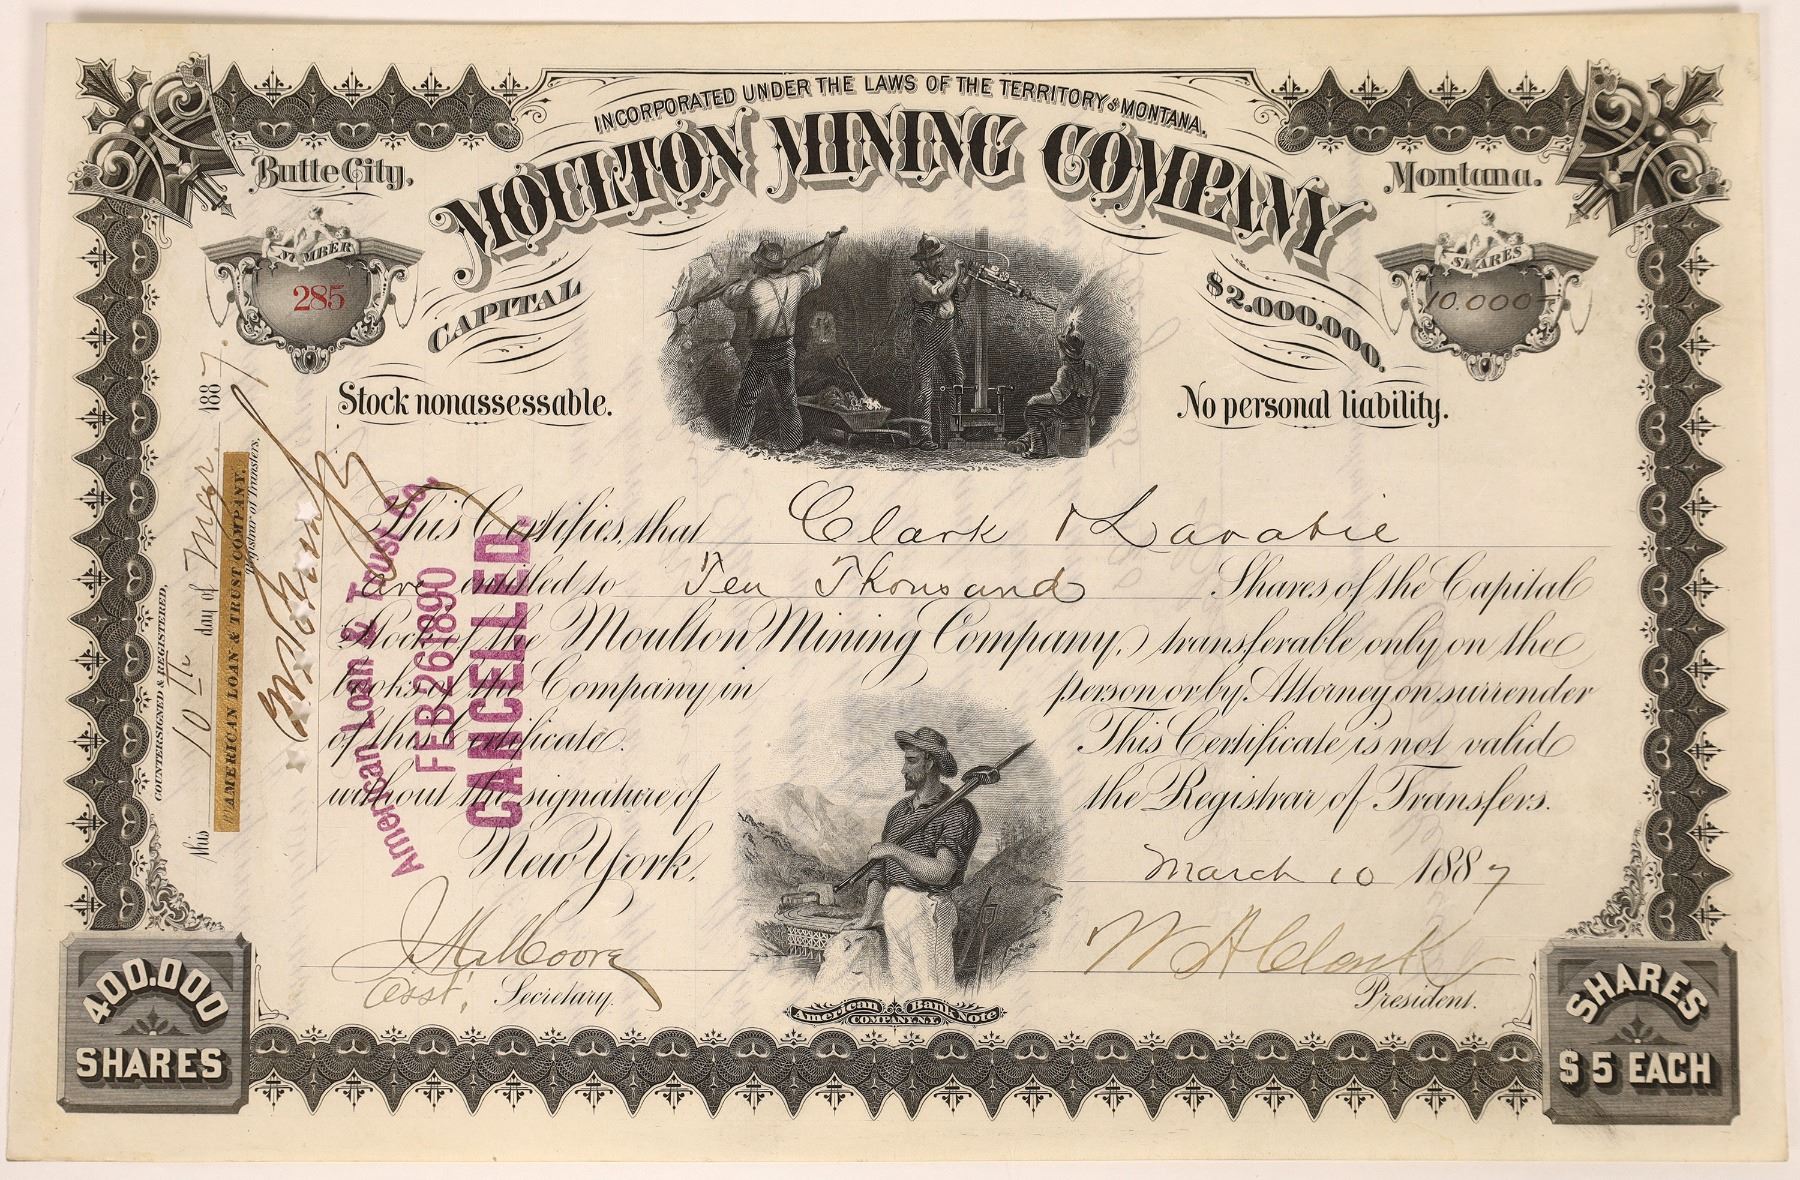 INCORPORATED UNDER THE LAWS OF THE TERRITORY OF MONTANA.
MOULTON MINING COMPANY
Butte City,
Montana.
NUMBER
285
SHARES
10.000
CAPITAL
$2.000.000.
Stock nonassessable.
No personal liability.
This Certifies, that Clark & Larabie
are entitled to Ten Thousand Shares of the Capital
Stock of the Moulton Mining Company, transferable only on the
books of the Company in person or by Attorney on surrender
of this Certificate. This Certificate is not valid
without the signature of the Registrar of Transfers.
New York, March 10 1887
Asst. Secretary.
W A Clark
President.
American Bank Note
COMPANY, N.Y.
400.000
SHARES
SHARES
$5 EACH
COUNTERSIGNED & REGISTERED,
this 10th day of Mar. 1887.
AMERICAN LOAN & TRUST COMPANY.
Registrar of Transfers.
American Loan & Trust Co.
FEB 26 1890
CANCELLED.